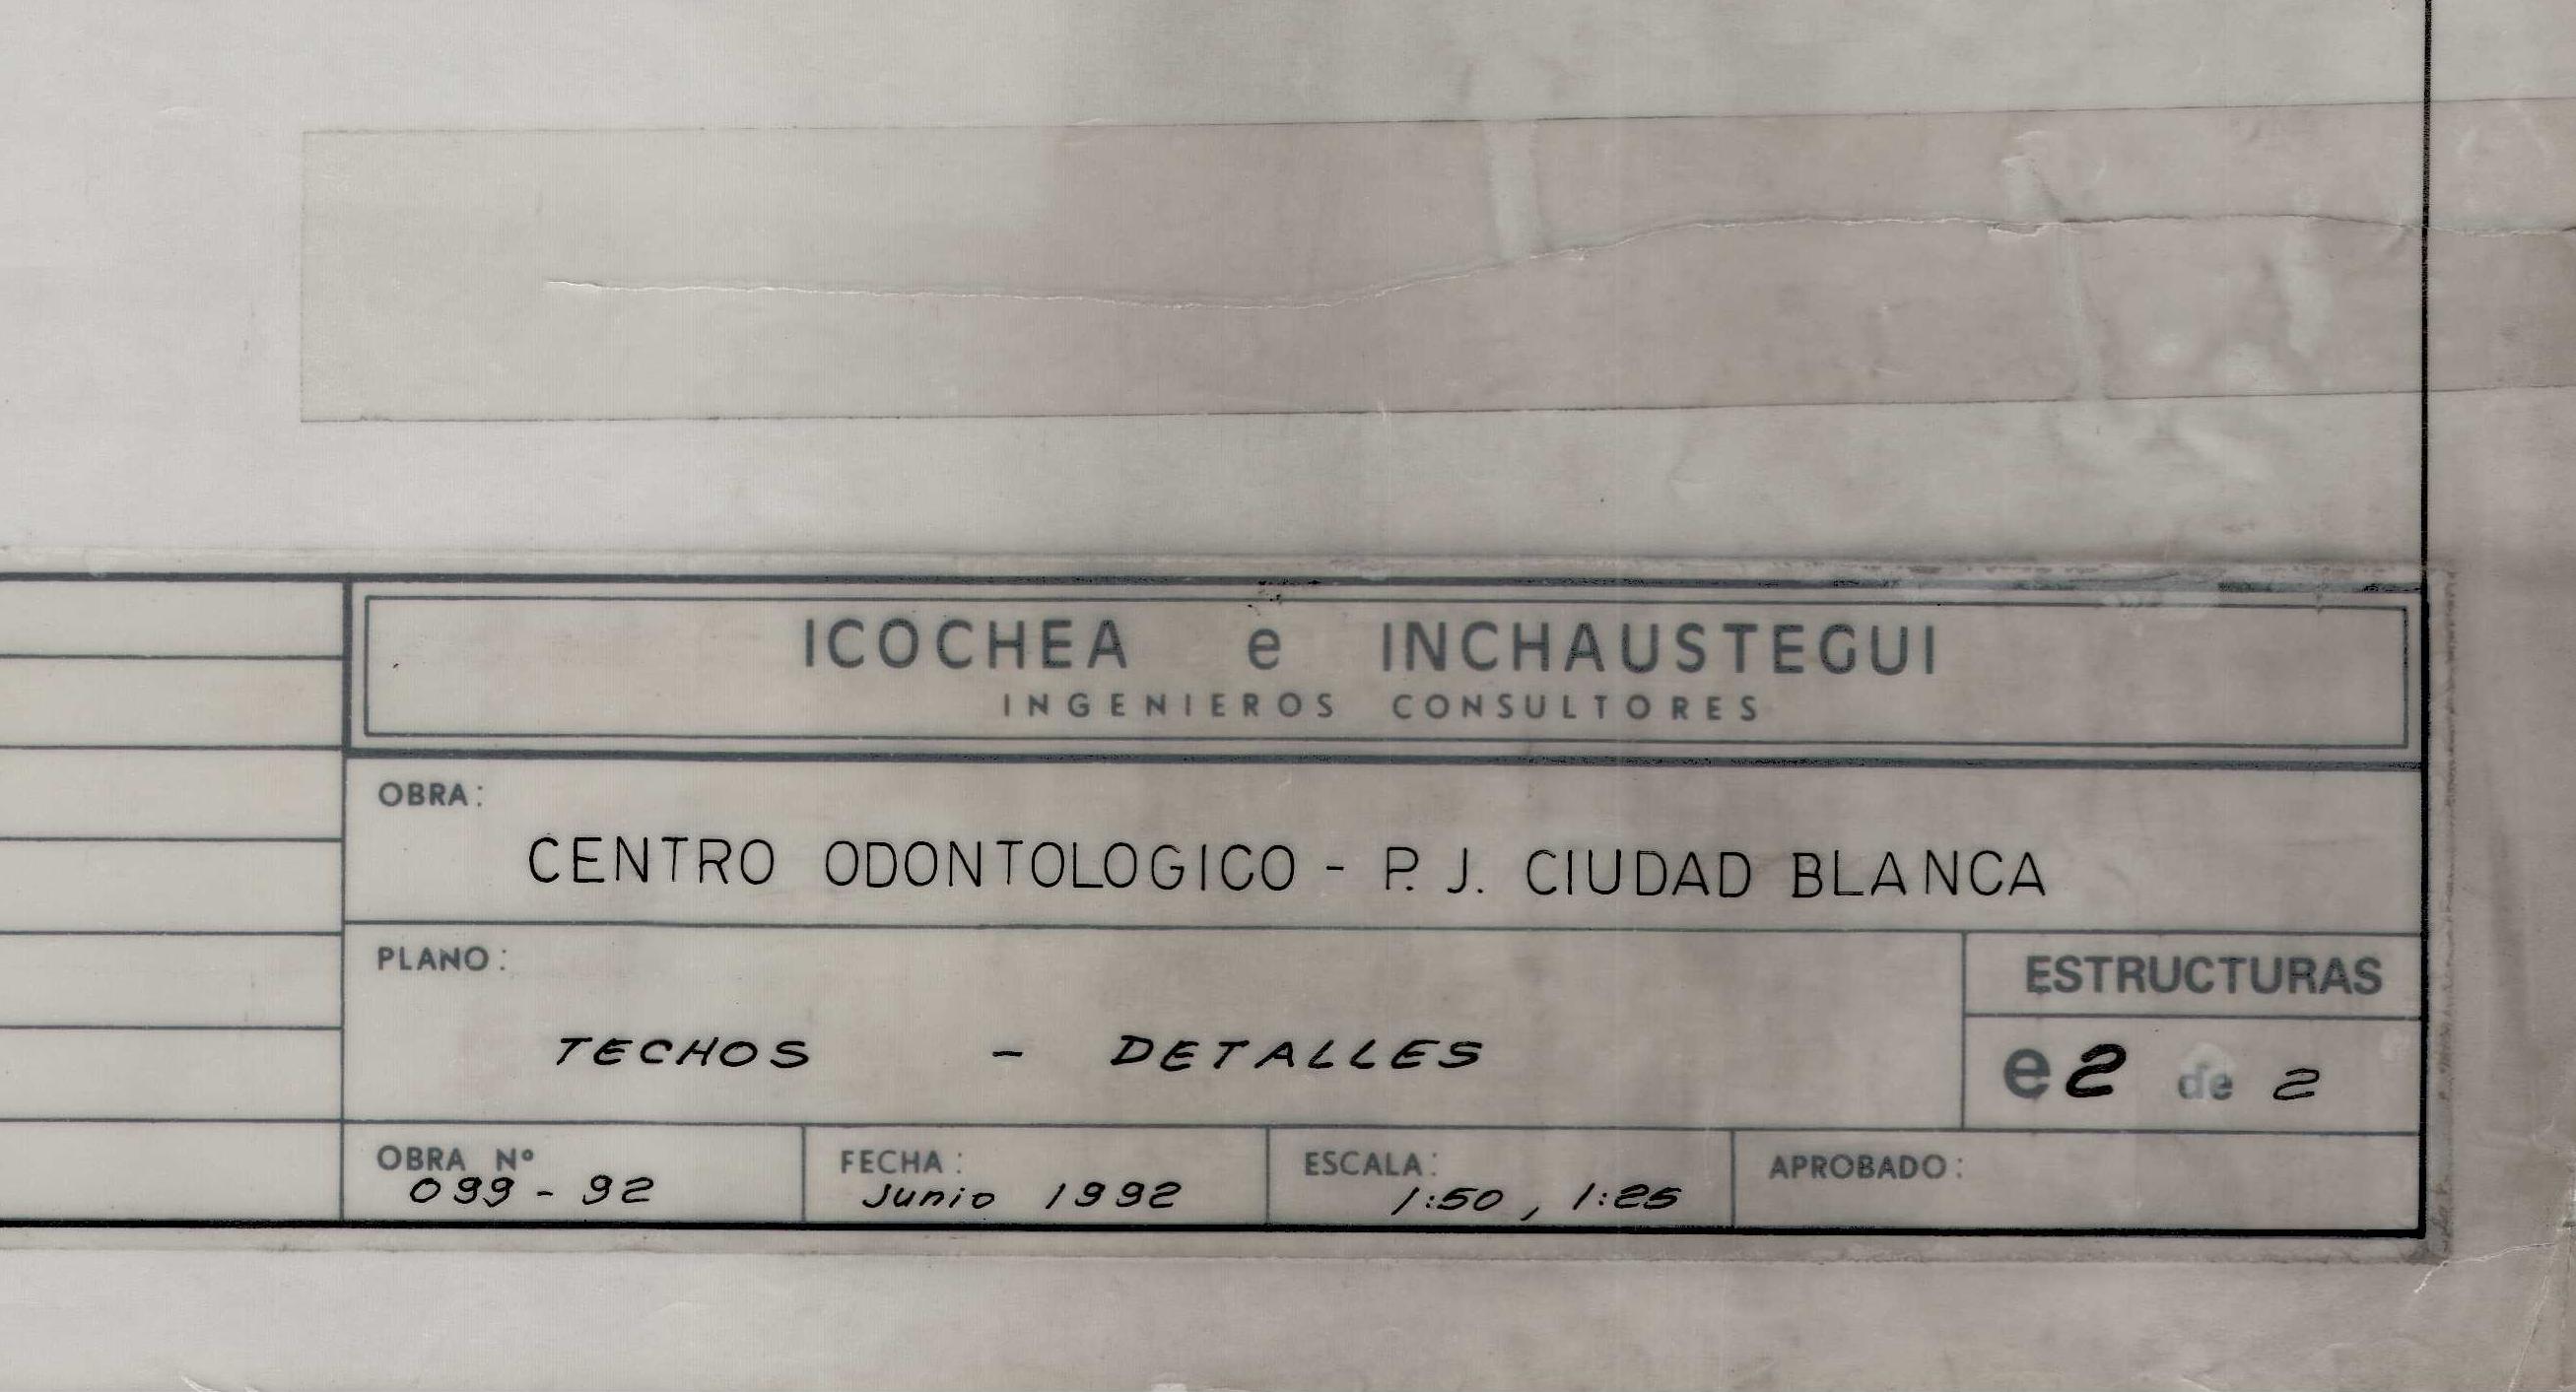 ICOCHEA e INCHAUSTEGUI
INGENIEROS CONSULTORES
OBRA:
CENTRO ODONTOLOGICO - P. J. CIUDAD BLANCA
PLANO:
TECHOS - DETALLES
ESTRUCTURAS
e2 de 2
OBRA Nº
099-92
FECHA:
Junio 1992
ESCALA:
1:50, 1:25
APROBADO: